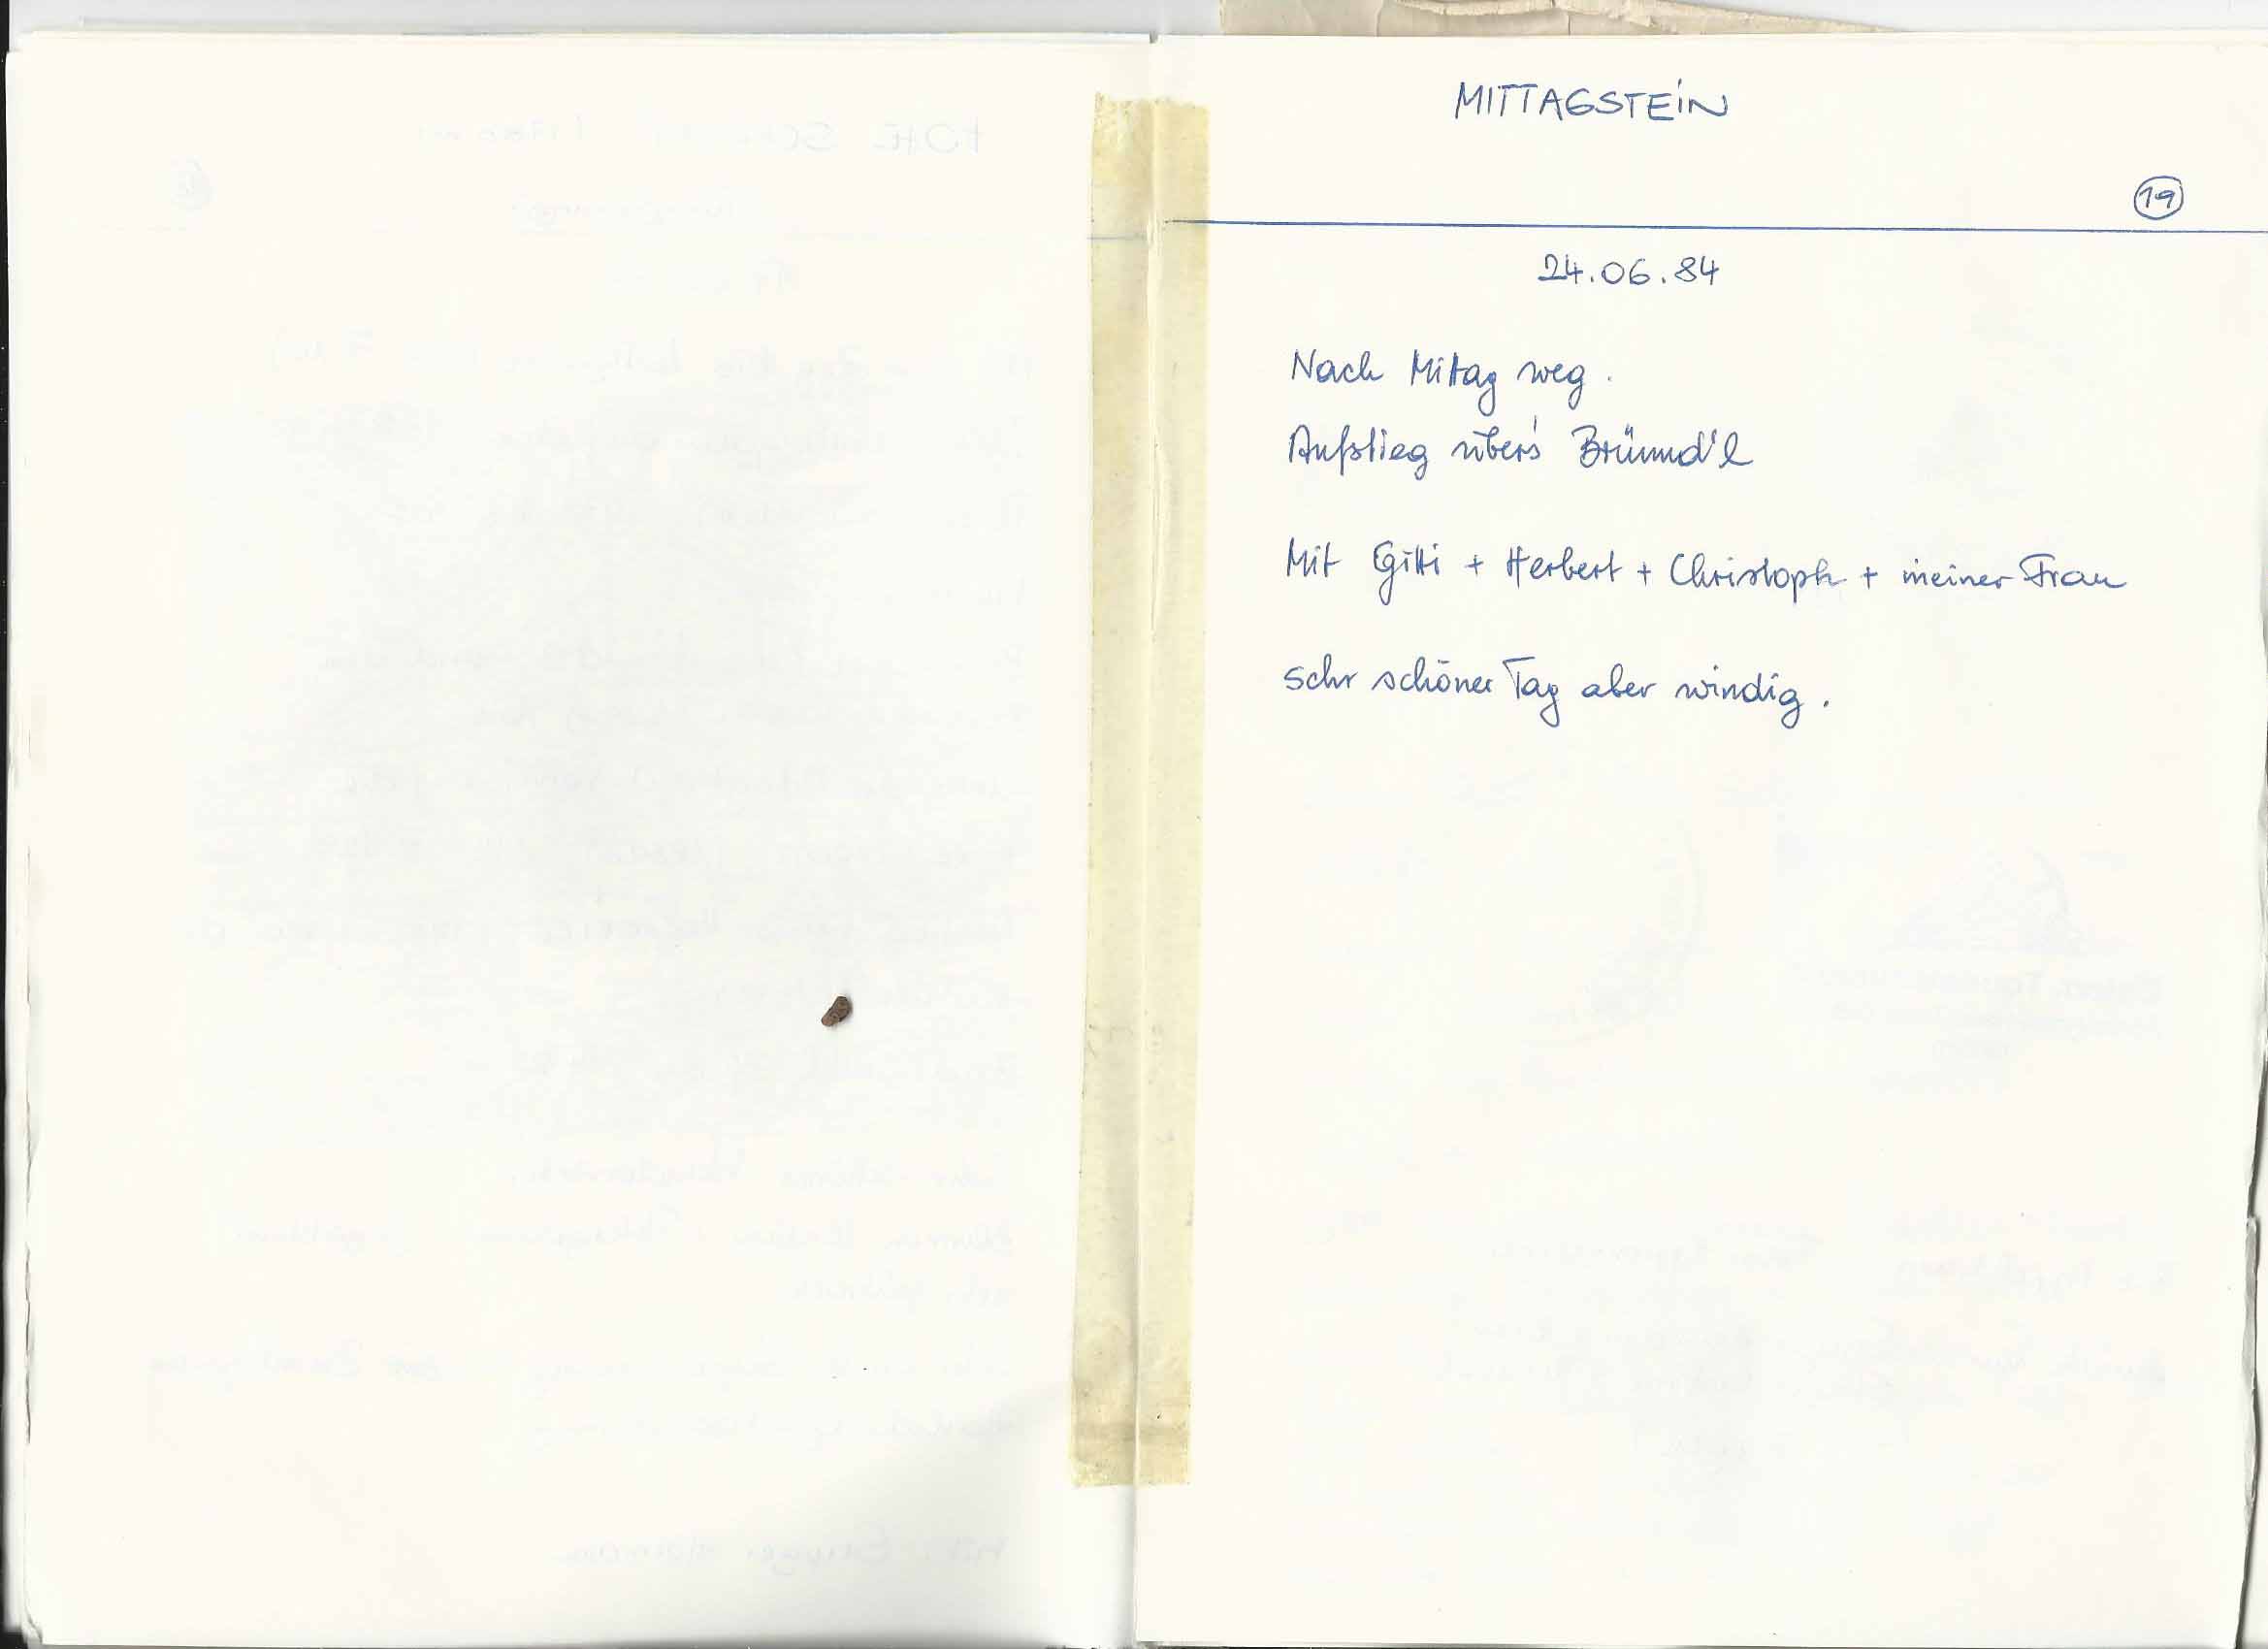 MITTAGSTEIN
19
24.06.84
Nach Mittag weg.
Aufstieg über's Bründ'l
Mit Gitti + Herbert + Christoph + meiner Frau
sehr schöner Tag aber windig.